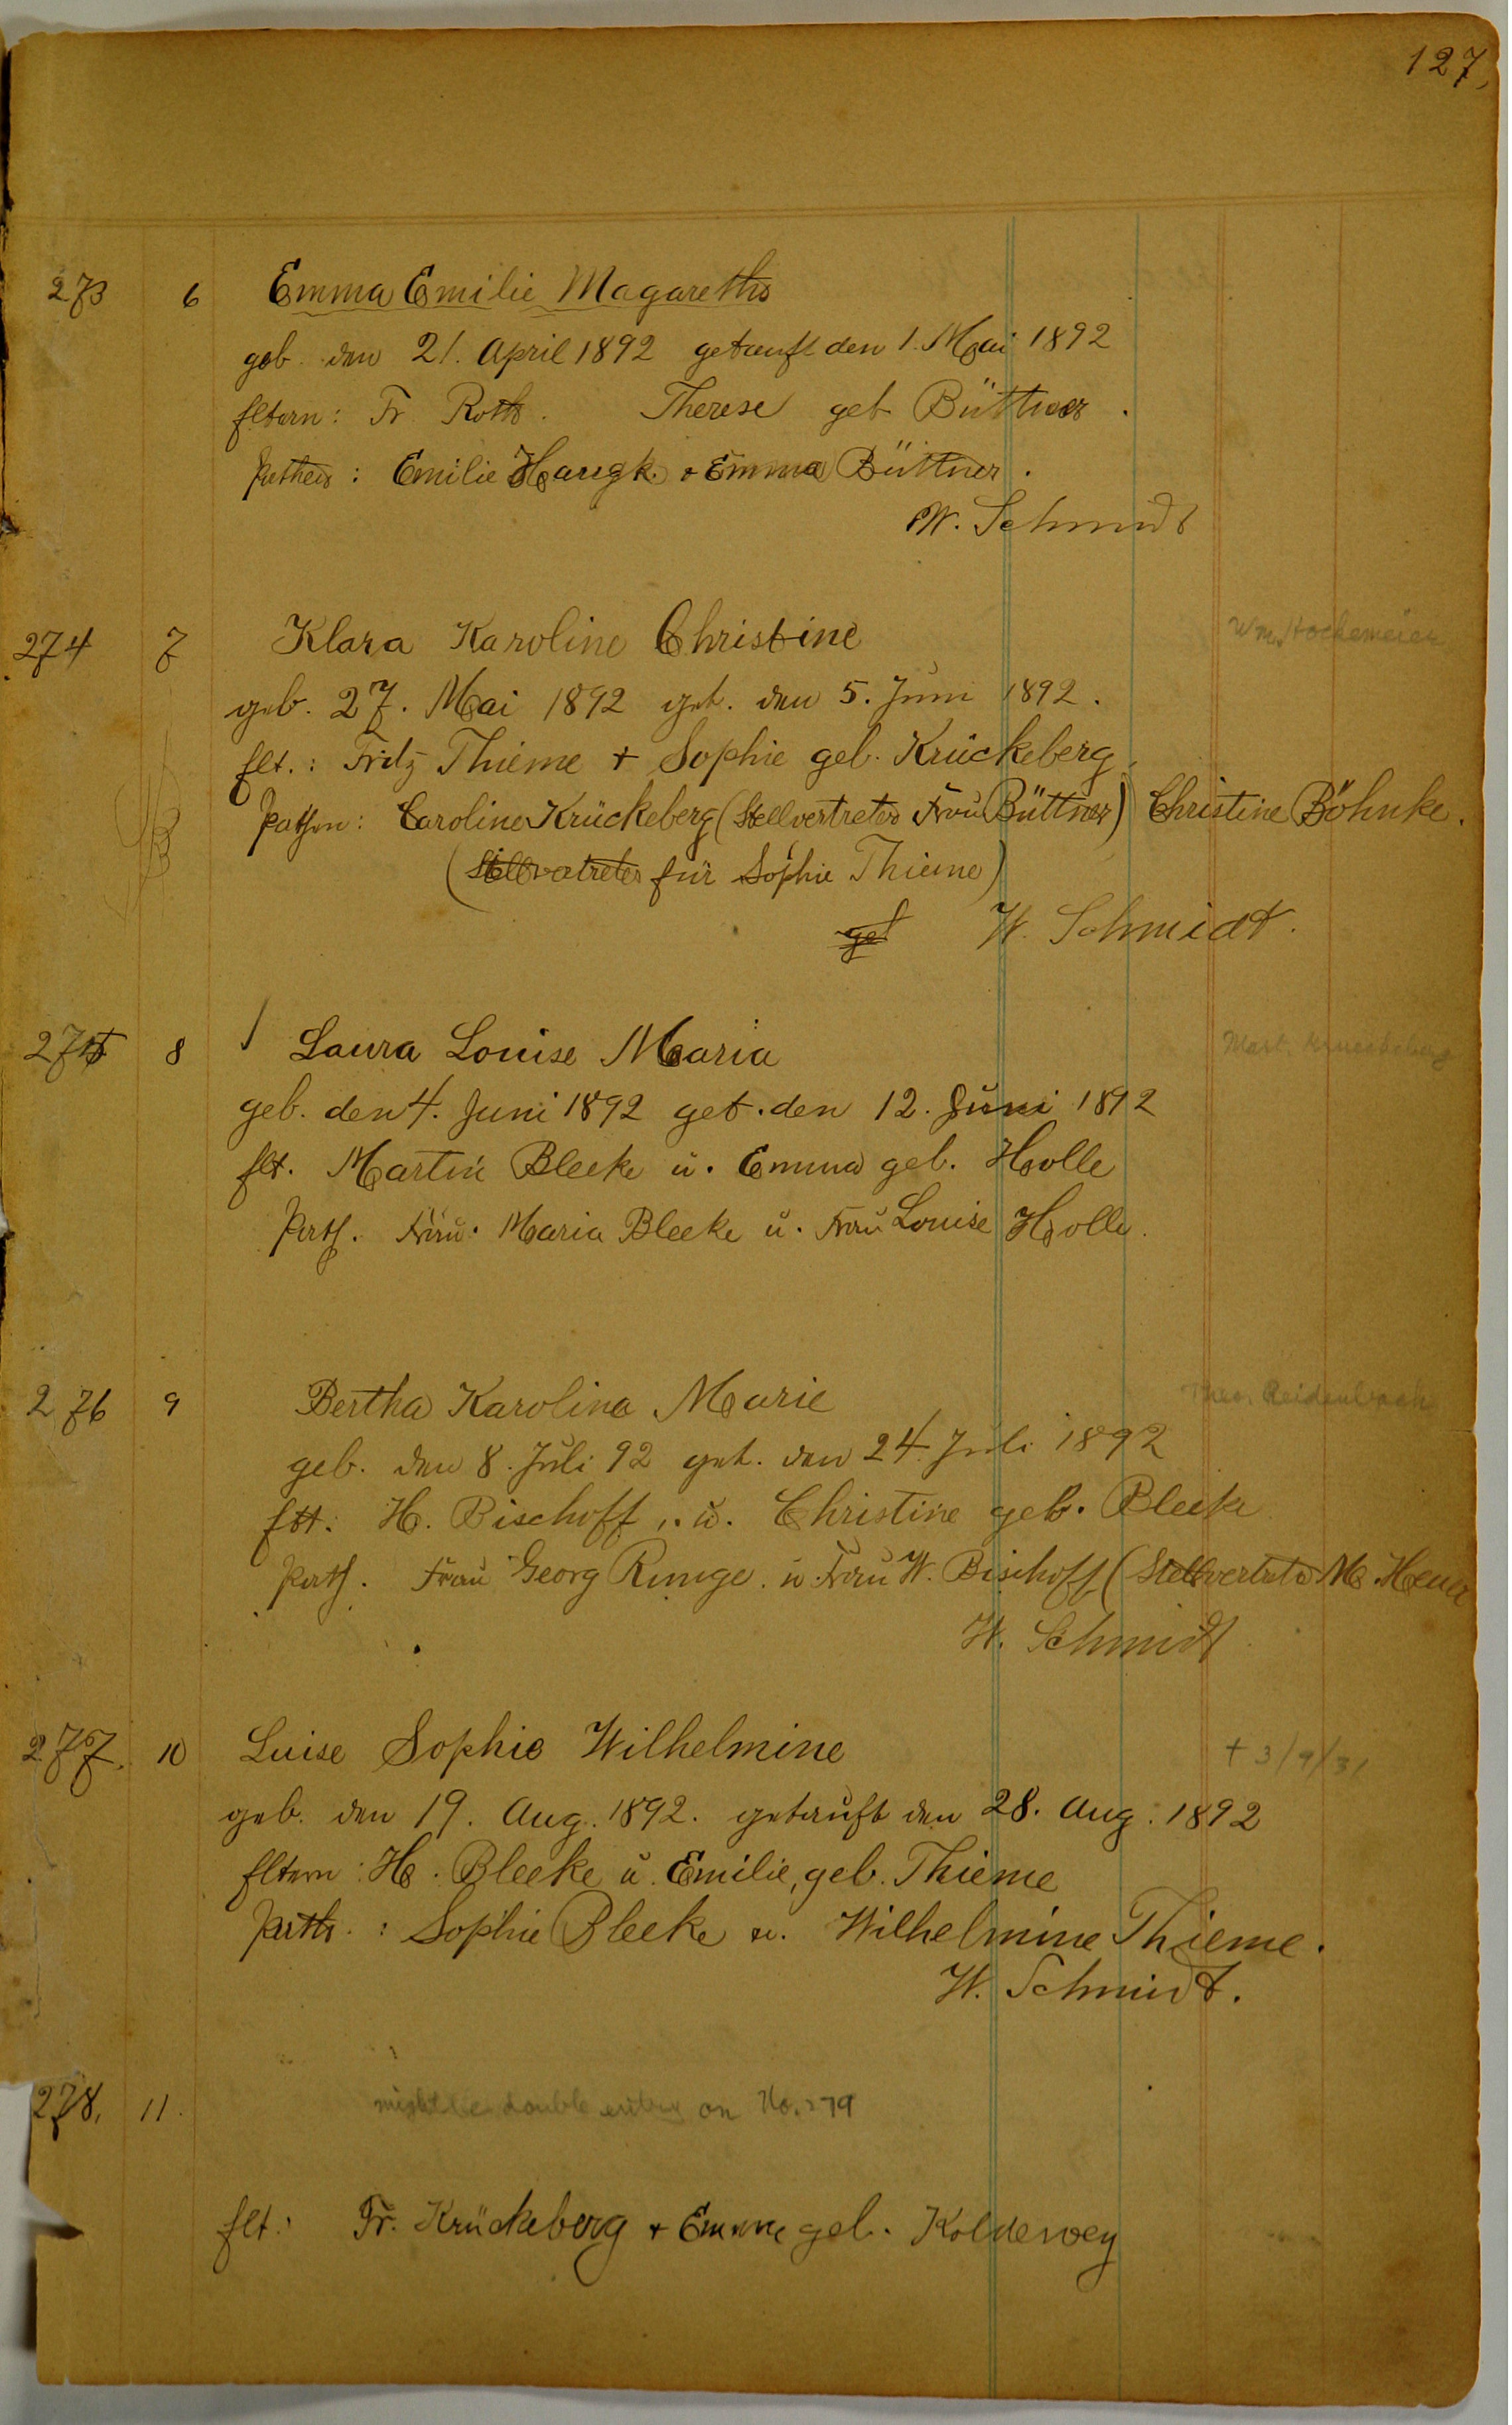 127,
273 6 Emma Emilie Magareths
geb. den 21. April 1892 getauft den 1. Mai 1892
Eltern: Fr. Roth. Therese geb Büttner.
Pathen: Emilie + Emma Büttner.
W. Schmidt
274 7 Klara Karoline Christine Wm. Hockemeier
geb. 27. Mai 1892 get. den 5. Juni 1892.
Elt.: Fritz Thieme + Sophie geb. Krückeberg.
Pathen: Caroline Krückeberg (Stellvertreter Frau Büttner) Christine Böhnke.
(Stellvertreter für Sophie Thieme)
get W. Schmidt.
275 8 Laura Louise Maria Mart. Krueckeberg
geb. den 4. Juni 1892 get. den 12. Juni 1892
Elt. Martin Bleeke u. Emma geb. Holle
Path. Frau. Maria Bleeke u. Frau Louise Holle.
276 9 Bertha Karolina Marie Theo. Reidenbach
geb. den 8. Juli 92 get. den 24. Juli 1892
Elt. H. Bischoff, u. Christine geb. Bleeke
Path. Frau Georg Runge. u. Frau W. Bischoff (Stellvertreter M. Heuer
W. Schmidt
277. 10 Luise Sophie Wilhelmine + 3/9/31
geb. den 19. Aug. 1892. getauft den 28. Aug. 1892
Eltern: H. Bleeke u. Emilie, geb. Thieme
Path.: Sophie Bleeke u. Wilhelmine Thieme.
W. Schmidt.
278. 11. might be double entry on No. 279
Elt.: Fr. Krückeberg + Emma geb. Koldewey